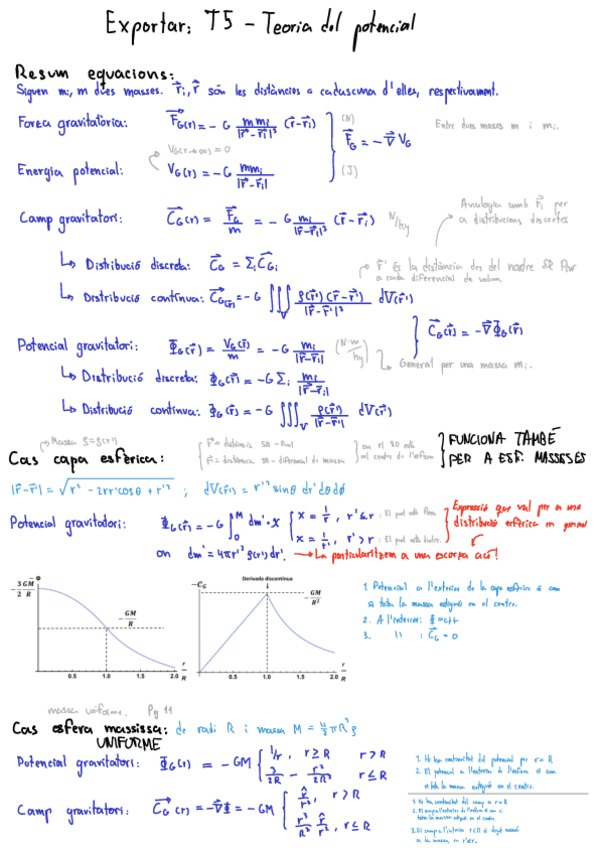 Exportar: T5 - Teoria del potencial
Resum equacions:
Siguen mi, m dues masses. r⃗i, r⃗ són les distàncies a cadascuna d'elles, respectivament.
Força gravitatòria: F⃗G(r) = - G m mi / |r⃗-r⃗i|³ (r⃗-r⃗i) (N) F⃗G = -∇⃗ VG Entre dues masses m i mi.
VG(r→∞) = 0
Energia potencial: VG(r) = - G m mi / |r⃗-r⃗i| (J)
Camp gravitatori: C⃗G(r) = F⃗G / m = - G mi / |r⃗-r⃗i|³ (r⃗-r⃗i) N/kg
Analogia amb r⃗i per a distribucions discretes
↳ Distribució discreta: C⃗G = Σi C⃗Gi
r⃗' és la distància des del nostre SR
a cada diferencial de volum
↳ Distribució contínua: C⃗G(r⃗) = - G ∭V ρ(r⃗')(r⃗-r⃗') / |r⃗-r⃗'|³ dV(r⃗')
C⃗G(r⃗) = -∇⃗ΦG(r⃗)
Potencial gravitatori: ΦG(r⃗) = VG(r⃗) / m = - G mi / |r⃗-r⃗i| (N·m/kg)
General per una massa mi.
↳ Distribució discreta: ΦG(r⃗) = - G Σi mi / |r⃗-r⃗i|
↳ Distribució contínua: ΦG(r⃗) = - G ∭V ρ(r⃗') / |r⃗-r⃗'| dV(r⃗')
Massa ρ=ρ(r')
r⃗ = distància SR - Punt
r⃗' = distància SR - diferencial de massa
on el SR està
al centre de l'esfera
FUNCIONA TAMBÉ
PER A ESF. MASSISES
Cas capa esfèrica:
|r⃗-r⃗'| = √(r² - 2rr'cosθ + r'²) ; dV(r⃗') = r'² sinθ dr' dθ dφ
Potencial gravitatori: ΦG(r⃗) = - G ∫₀ᴹ dm' · x { x = 1/r, r' ≤ r : El punt està fora.
x = 1/r', r' > r : El punt està dintre.
Expressió que val per a una
distribució esfèrica en general
on dm' = 4πr'² ρ(r') dr'. → La particularitzem a una escorça ací!
Φ
-3/2 GM/R
-GM/R
0.5 1.0 1.5 2.0 r/R
-CG
Derivada discontínua
-GM/R²
0.5 1.0 1.5 2.0 r/R
1. Potencial a l'exterior de la capa esfèrica és com
si tota la massa estigués en el centre.
2. A l'interior: Φ = ct
3. " : C⃗G = 0
massa uniforme. Pg 11
Cas esfera massissa: de radi R i massa M = 4/3 πR³ρ
UNIFORME
Potencial gravitatori: ΦG(r) = - GM { 1/r, r ≥ R r > R
3/2R - r²/2R³ r ≤ R
1. Hi ha continuïtat del potencial per r = R
2. El potencial a l'exterior de l'esfera és com
si tota la massa estigués en el centre.
Camp gravitatori: C⃗G(r) = -∇⃗Φ = - GM { r̂/r², r > R
r³/R³ r̂/r², r ≤ R
1. Hi ha continuïtat del camp a r = R
2. El camp a l'exterior de l'esfera és com si
tota la massa estigués en el centre.
3. El camp a l'interior r<R és degut només
a la massa en r'≤r.